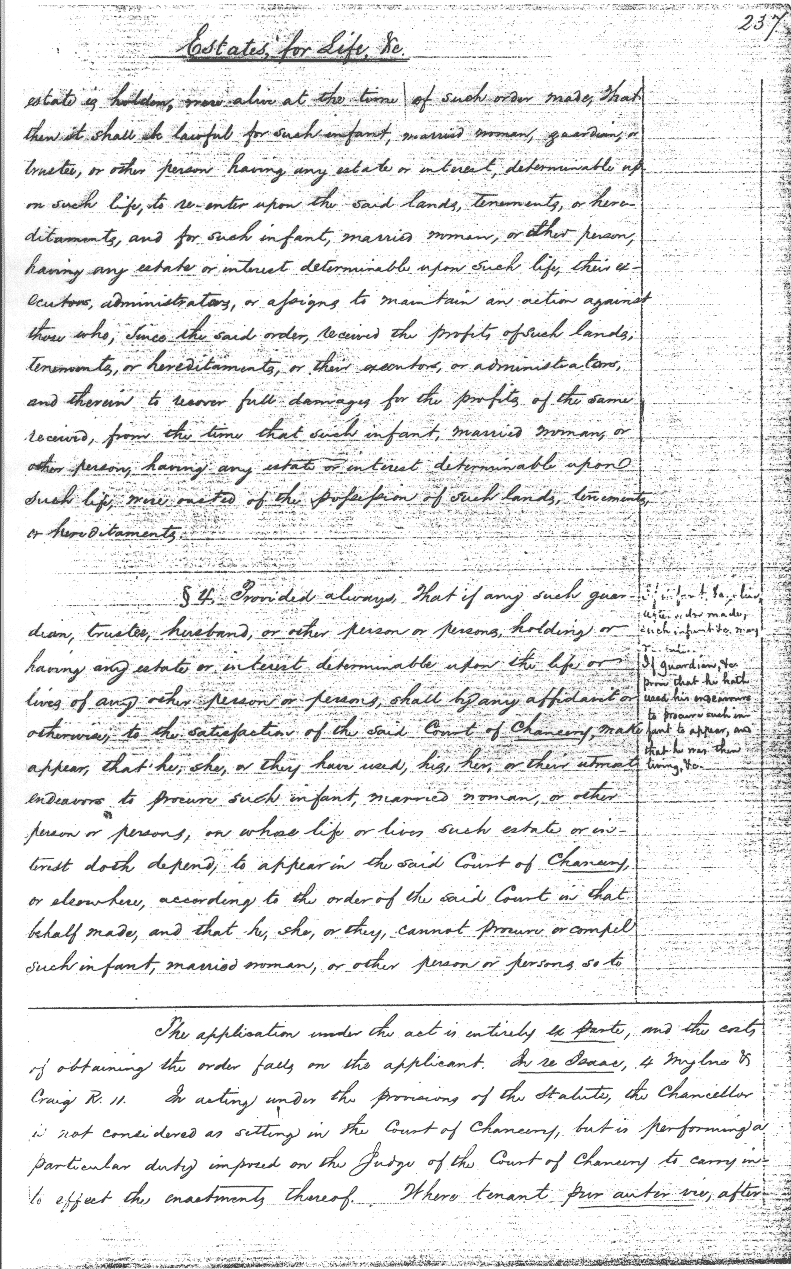 237
Estates, for Life, &c.
estate is holden, were alive at the time of such order made, That
then it shall be lawful for such infant, married woman, guardian, or
trustee, or other person having any estate or interest, determinable up-
on such life, to re-enter upon the said lands, tenements, or here-
ditaments, and for such infant, married woman, or other person,
having any estate or interest determinable upon such life, their ex-
ecutors, administrators, or assigns to maintain an action against
those who, since the said order, received the profits of such lands,
tenements, or hereditaments, or their executors, or administrators,
and therein to recover full damages for the profits of the same
received, from the time that such infant, married woman, or
other person, having any estate or interest determinable upon
such life, were ousted of the possession of such lands, tenements,
or hereditaments.
§ 4. Provided always, That if any such guar-
dian, trustee, husband, or other person or persons, holding or
having any estate or interest determinable upon the life or
lives of any other person or persons, shall by any affidavit or
otherwise, to the satisfaction of the said Court of Chancery, make
appear, that he, she, or they have used, his, her, or their utmost
endeavors to procure such infant, married woman, or other
person or persons, on whose life or lives such estate or in-
terest doth depend, to appear in the said Court of Chancery,
or elsewhere, according to the order of the said Court in that
behalf made, and that he, she, or they, cannot procure or compel
such infant, married woman, or other person or persons, so to
If infant, &c., alive
after order made,
such infant &c. may
If guardian, &c.
prove that he hath
used his endeavours
to procure such in-
fant to appear, and
that he was then
living, &c.
The application under the act is entirely ex parte, and the costs
of obtaining the order falls on the applicant. In re Isaac, 4 Mylne &
Craig R. 11. In acting under the provisions of the Statute, the Chancellor
is not considered as sitting in the Court of Chancery, but is performing a
particular duty imposed on the Judge of the Court of Chancery to carry in-
to effect the enactments thereof. Where tenant pur auter vie, after